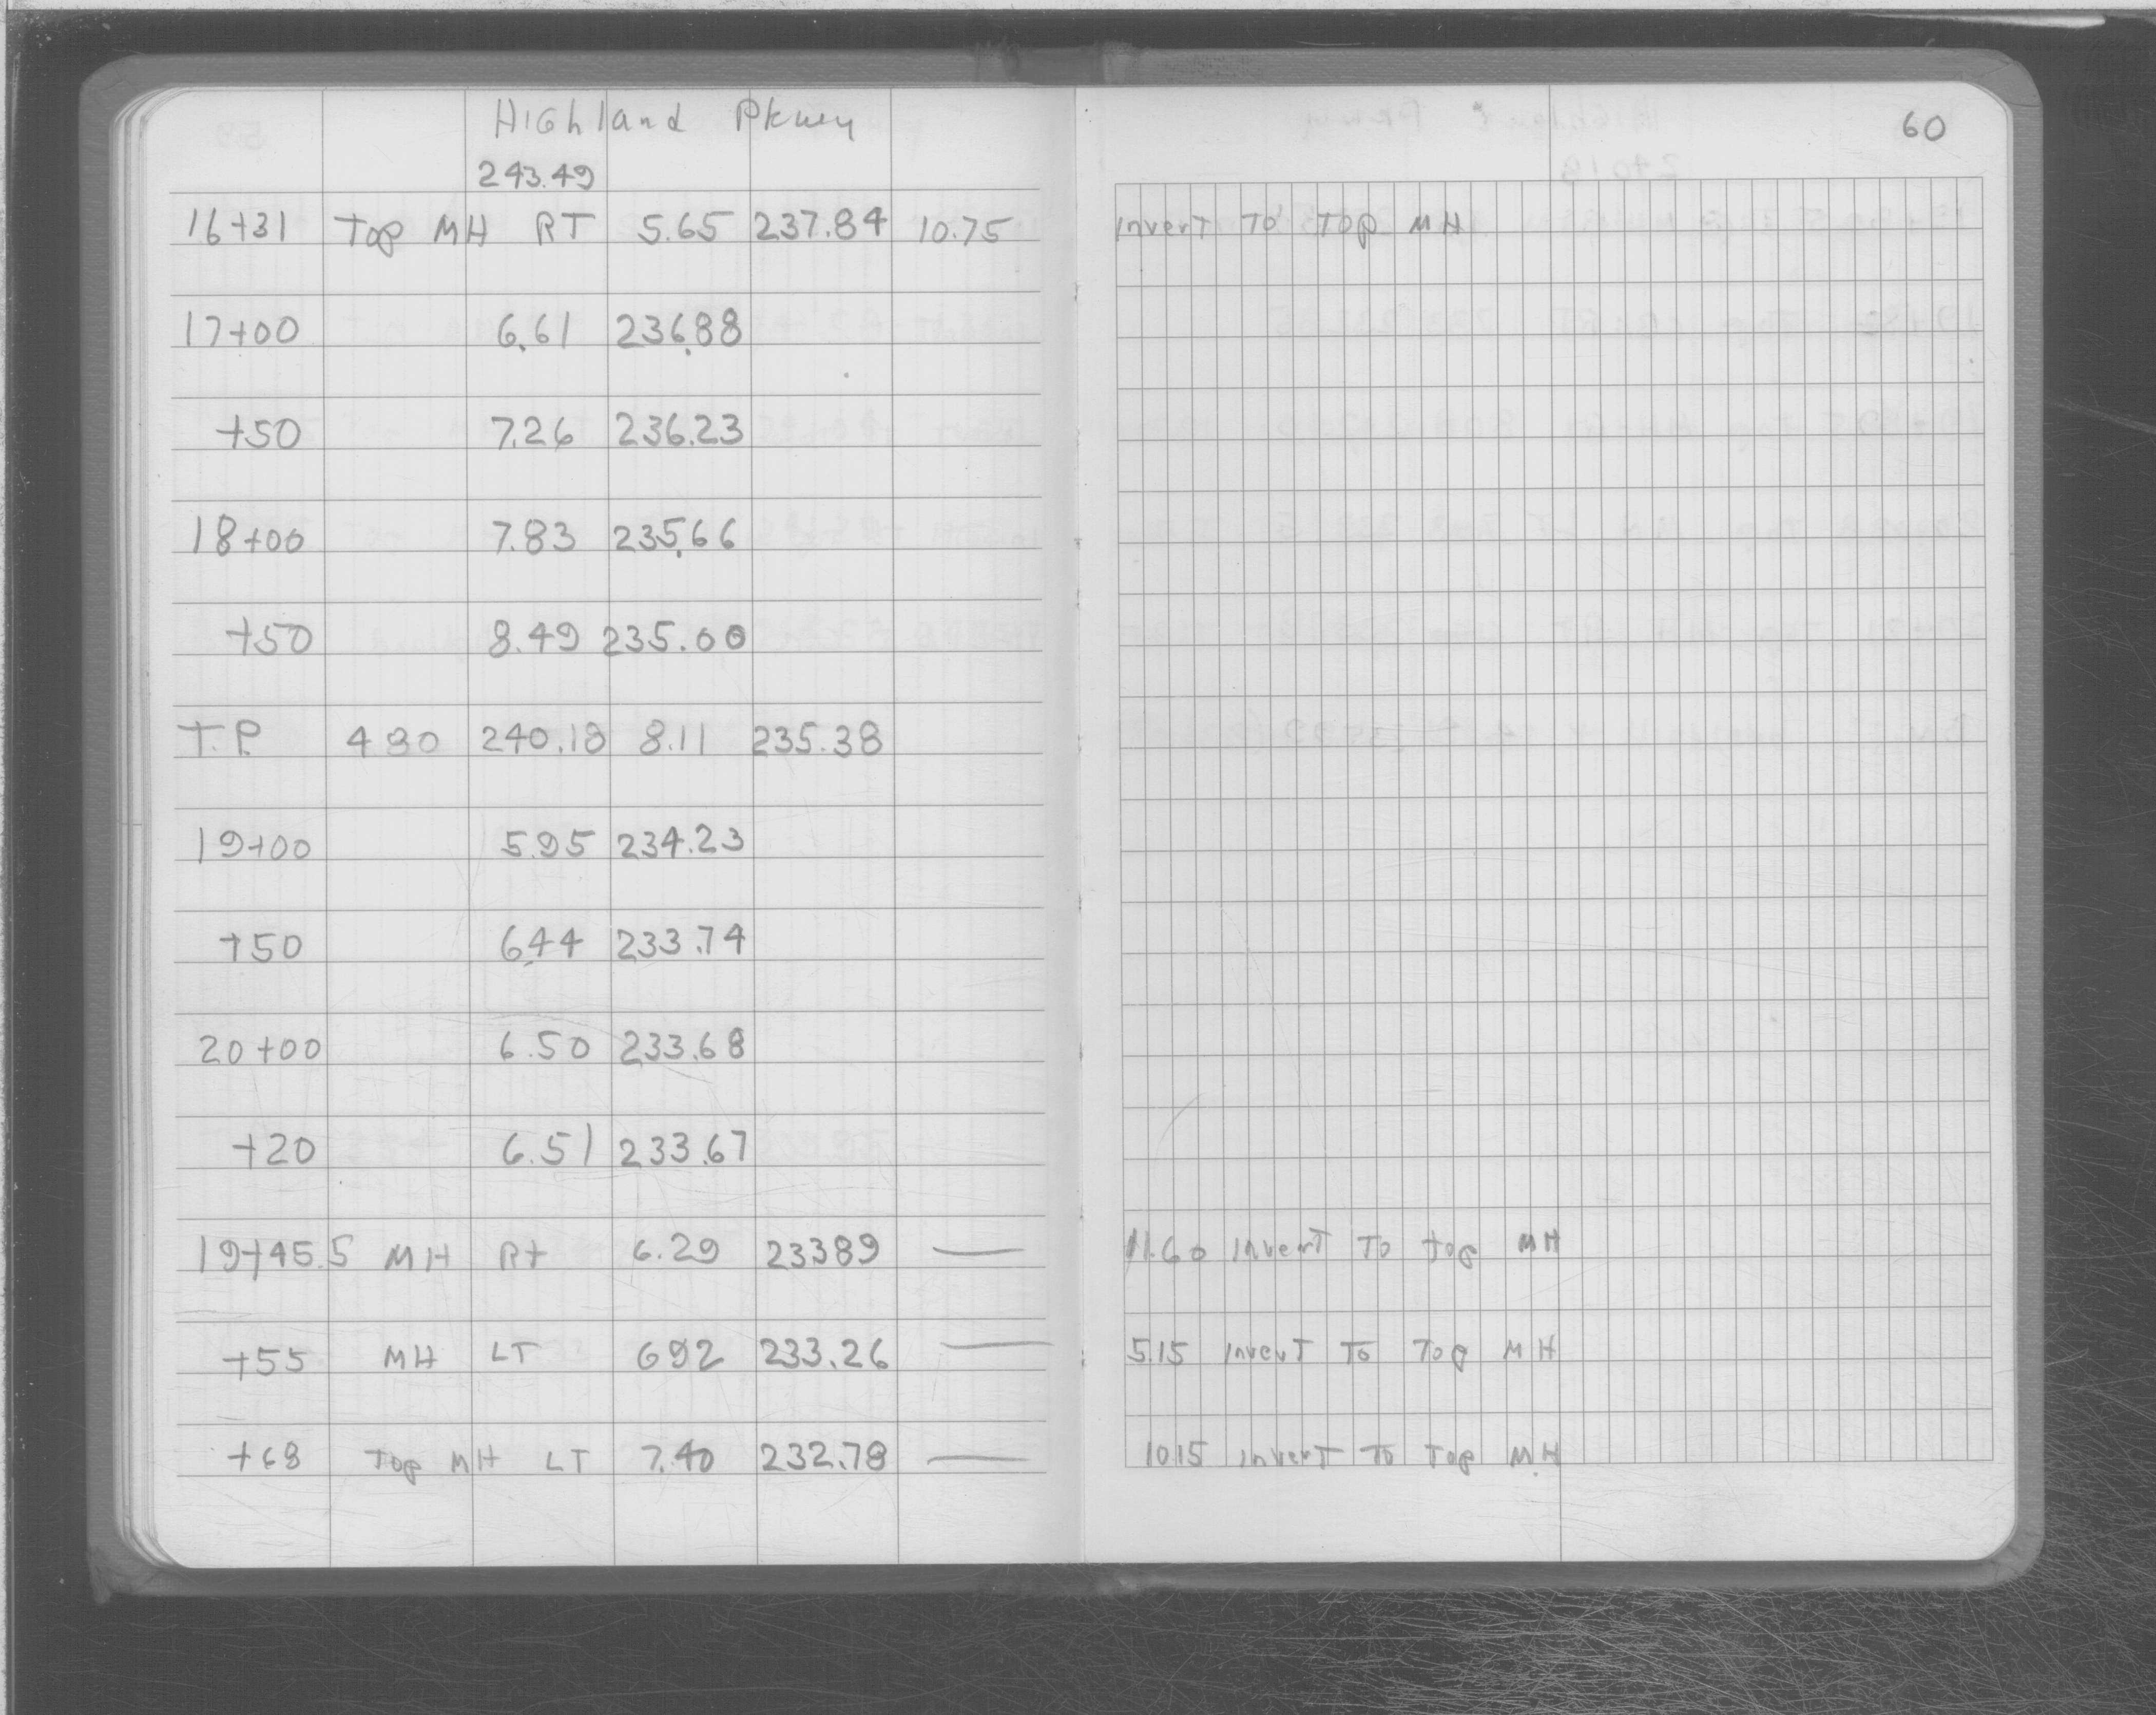 Highland Pkwy
60
243.49
16+31 Top MH RT 5.65 237.84 10.75 Invert To Top MH
17+00 6.61 236.88
+50 7.26 236.23
18+00 7.83 235.66
+50 8.49 235.00
T.P. 480 240.18 8.11 235.38
19+00 5.95 234.23
+50 6.44 233.74
20+00 6.50 233.68
+20 6.51 233.67
19+45.5 MH Rt 6.29 23389 — 11.60 Invert To top MH
+55 MH LT 692 233.26 — 5.15 Invert To Top MH
+68 Top MH LT 7.40 232.78 — 1015 Invert To Top MH